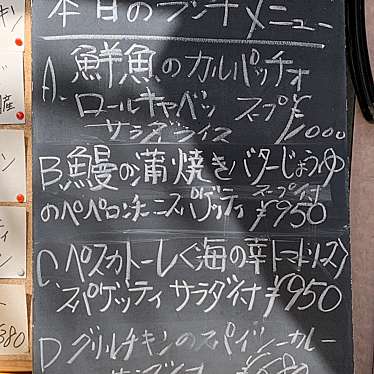 本日のランチメニュー
A. 鮮魚のカルパッチオ
ロールキャベツ スープ付
サラダライス ¥1000
B. 鰻の蒲焼きバターじょうゆ
のペペロンチーニスパゲッティ スープ付 ¥950
C. ペスカトーレ(海の幸トマトソース)
スパゲッティ サラダ付 ¥950
D グリルチキンのスパイシーカレー